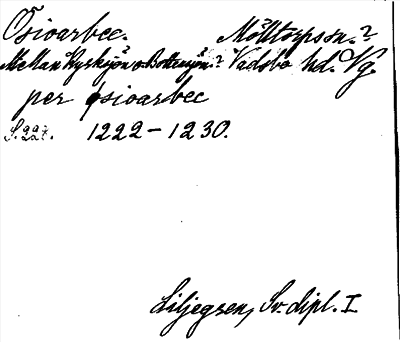 Ösioarbec. Mölltorpssn.?
Mellan Kyrksjön o. Bottensjön? Vadsbo hd. Vg.
per ösioarbec
S. 227. 1222-1230.
Liljegren, Sv. dipl. I